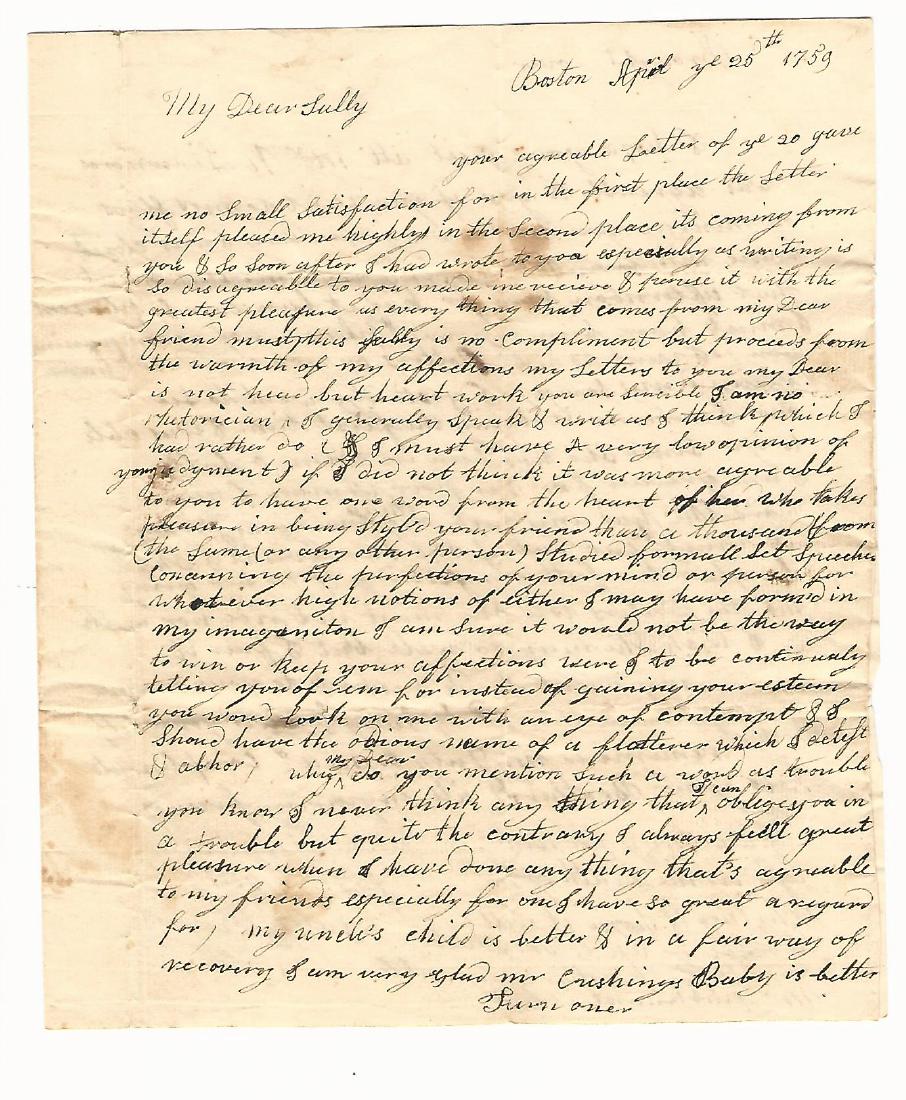 Boston April ye 25th 1759
My Dear Sally
your agreable Letter of ye 20 gave
me no small satisfaction for in the first place the Letter
itself pleased me highly in the second place its coming from
you & so soon after I had wrote to you especially as writing is
so disagreable to you made me recieve & peruse it with the
greatest pleasure as every thing that comes from my Dear
friend must, this Sally is no compliment but proceeds from
the warmth of my affections my Letters to you my Dear
is not head but heart work you are sencible I am no
rhetorician, I generally speak & write as I think, which I
had rather do (& I must have a very low opinion of
your judgment) if I did not think it was more agreable
to you to have one word from the heart of her who takes
pleasure in being styl'd your friend than a thousand (from
(the same (or any other person) studied formall set speeches
concanning the perfections of your mind or person for
whatever high notions of either I may have form'd in
my imaganiton I am sure it would not be the way
to win or keep your affections were I to be continualy
telling you of 'em for instead of gaining your esteem
you woud look on me with an eye of contempt & I
shoud have the odious name of a flatterer which I detest
& abhor, why my Dear do you mention such a word as trouble
you know I never think any thing that I can oblige you in
a trouble but quite the contrary I always feell great
pleasure when I have done any thing that's agreable
to my friends especially for one I have so great a regard
for, my uncle's child is better & in a fair way of
recovery I am very glad mr Cushings Baby is better
Turn over